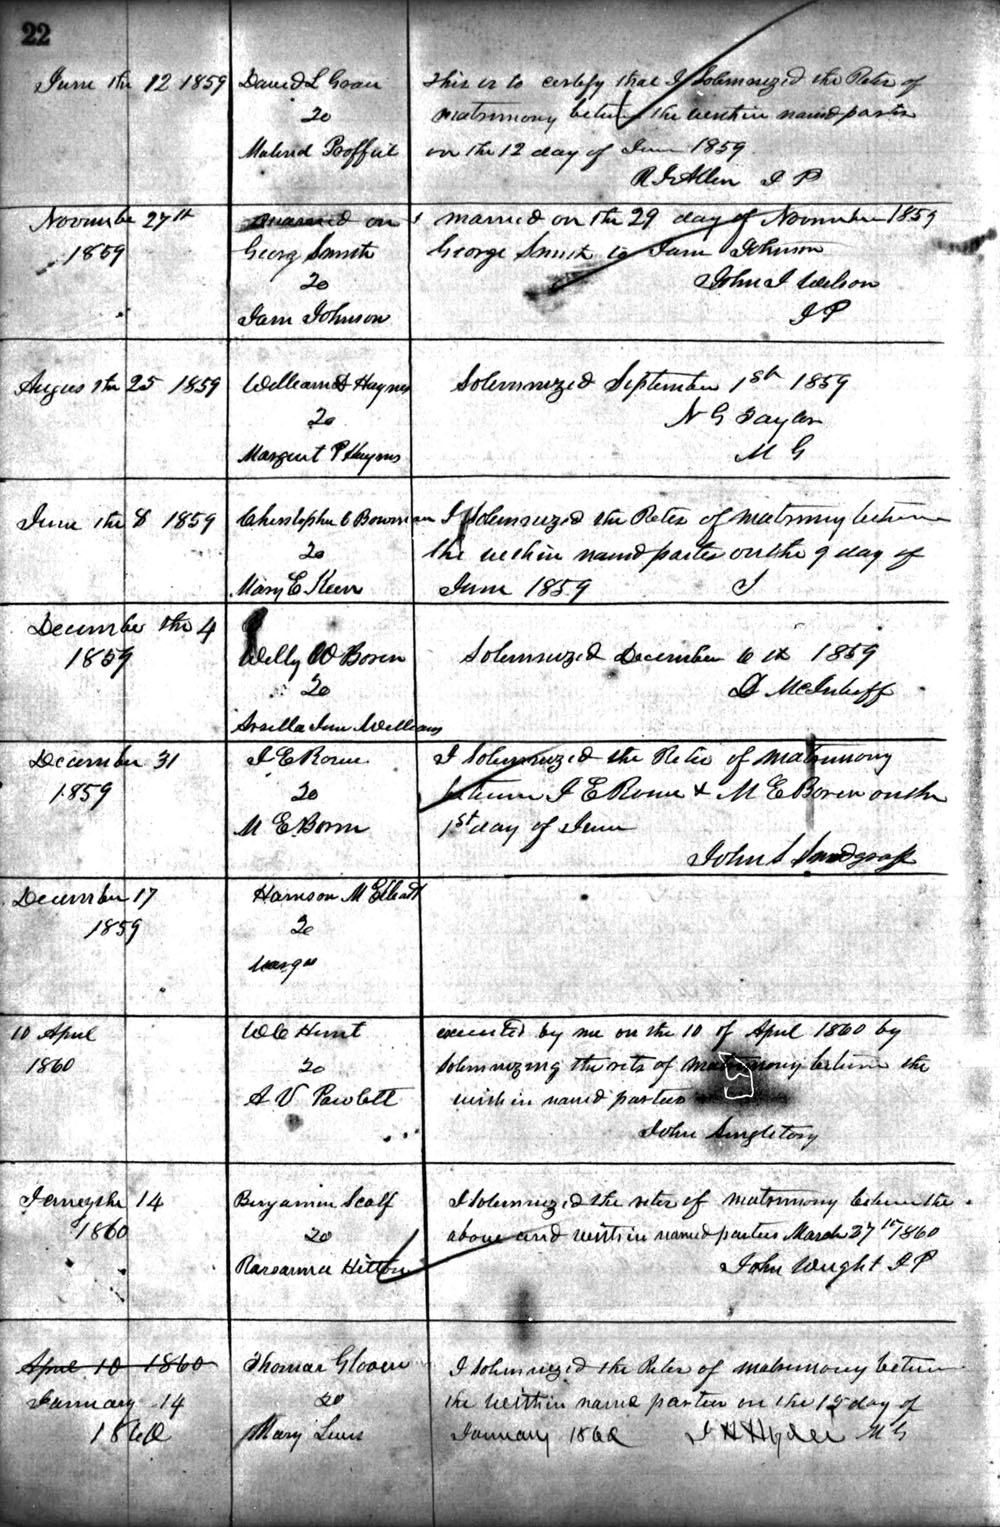 22
June the 12 1859
David L Goan
20
Malind Proffit
This is to certify that I Solemnized the Rites of
matrimony between the within named parties
on the 12 day of June 1859
R I Allen J P
November 27th
1859
married on
Georg Smith
20
Jane Johnson
married on the 29 day of November 1859
George Smith to Jane Johnson
John I Wilson
J P
August the 25 1859
William H Haynes
20
Margaret P Haynes
Solemnized September 1st 1859
N G Taylor
M G
June the 8 1859
Christopher C Bowman
20
Mary E Keen
I Solemnized the Rites of matrimony between
the within named parties on the 9 day of
June 1859
December the 4
1859
Willy W Boren
20
Ann Williams
Solemnized December 6 th 1859
D McInturff
December 31
1859
J E Rowe
20
M E Boren
I Solemnized the Rites of matrimony
between J E Rowe & M E Boren on the
1st day of June
John S Snodgrass
December 17
1859
Harrison M Elliott
20
W C Hunt
20
A V Pawlett
10 April
1860
executed by me on the 10 of April 1860 by
Solemnizing the rits of matrimony between the
within named parties
John Singletory
the 14
1860
Benjamin Scalf
20
Hitton
I Solemnized the rites of matrimony between the
above and within named parties March 27th 1860
John Wright J P
April 10 1860
January 14
1860
Thomas Glover
20
Mary Lewis
I Solemnized the Rites of matrimony between
the within name parties on the 15 day of
January 1860 J H Hyder M G